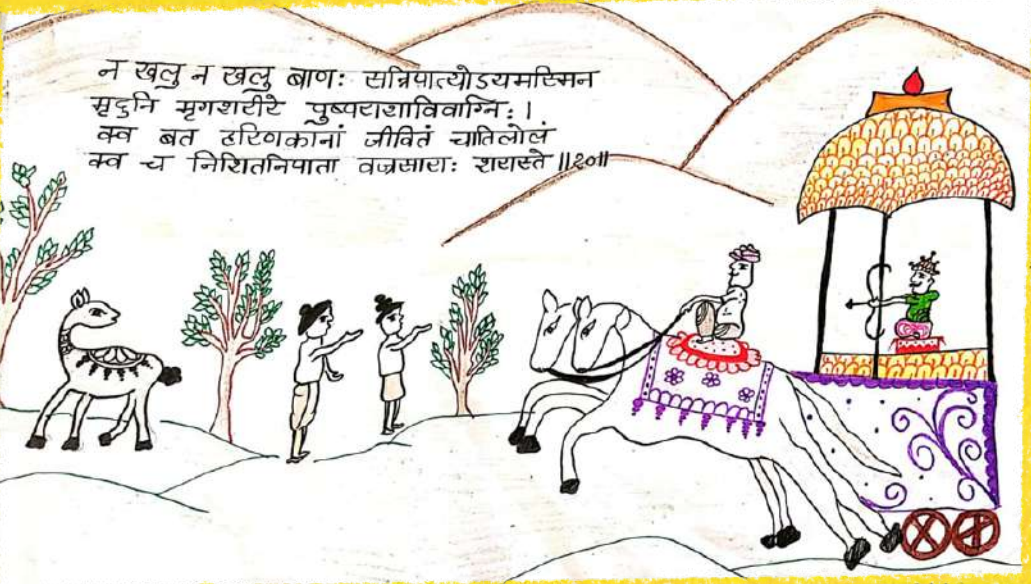 न खलु न खलु बाणः सन्निपात्योऽयमस्मिन
मृदुनि मृगशरीरे पुष्पराशाविवाग्निः।
क्व बत हरिणकानां जीवितं चातिलोलं
क्व च निशितनिपाता वज्रसाराः शरास्ते॥१०॥